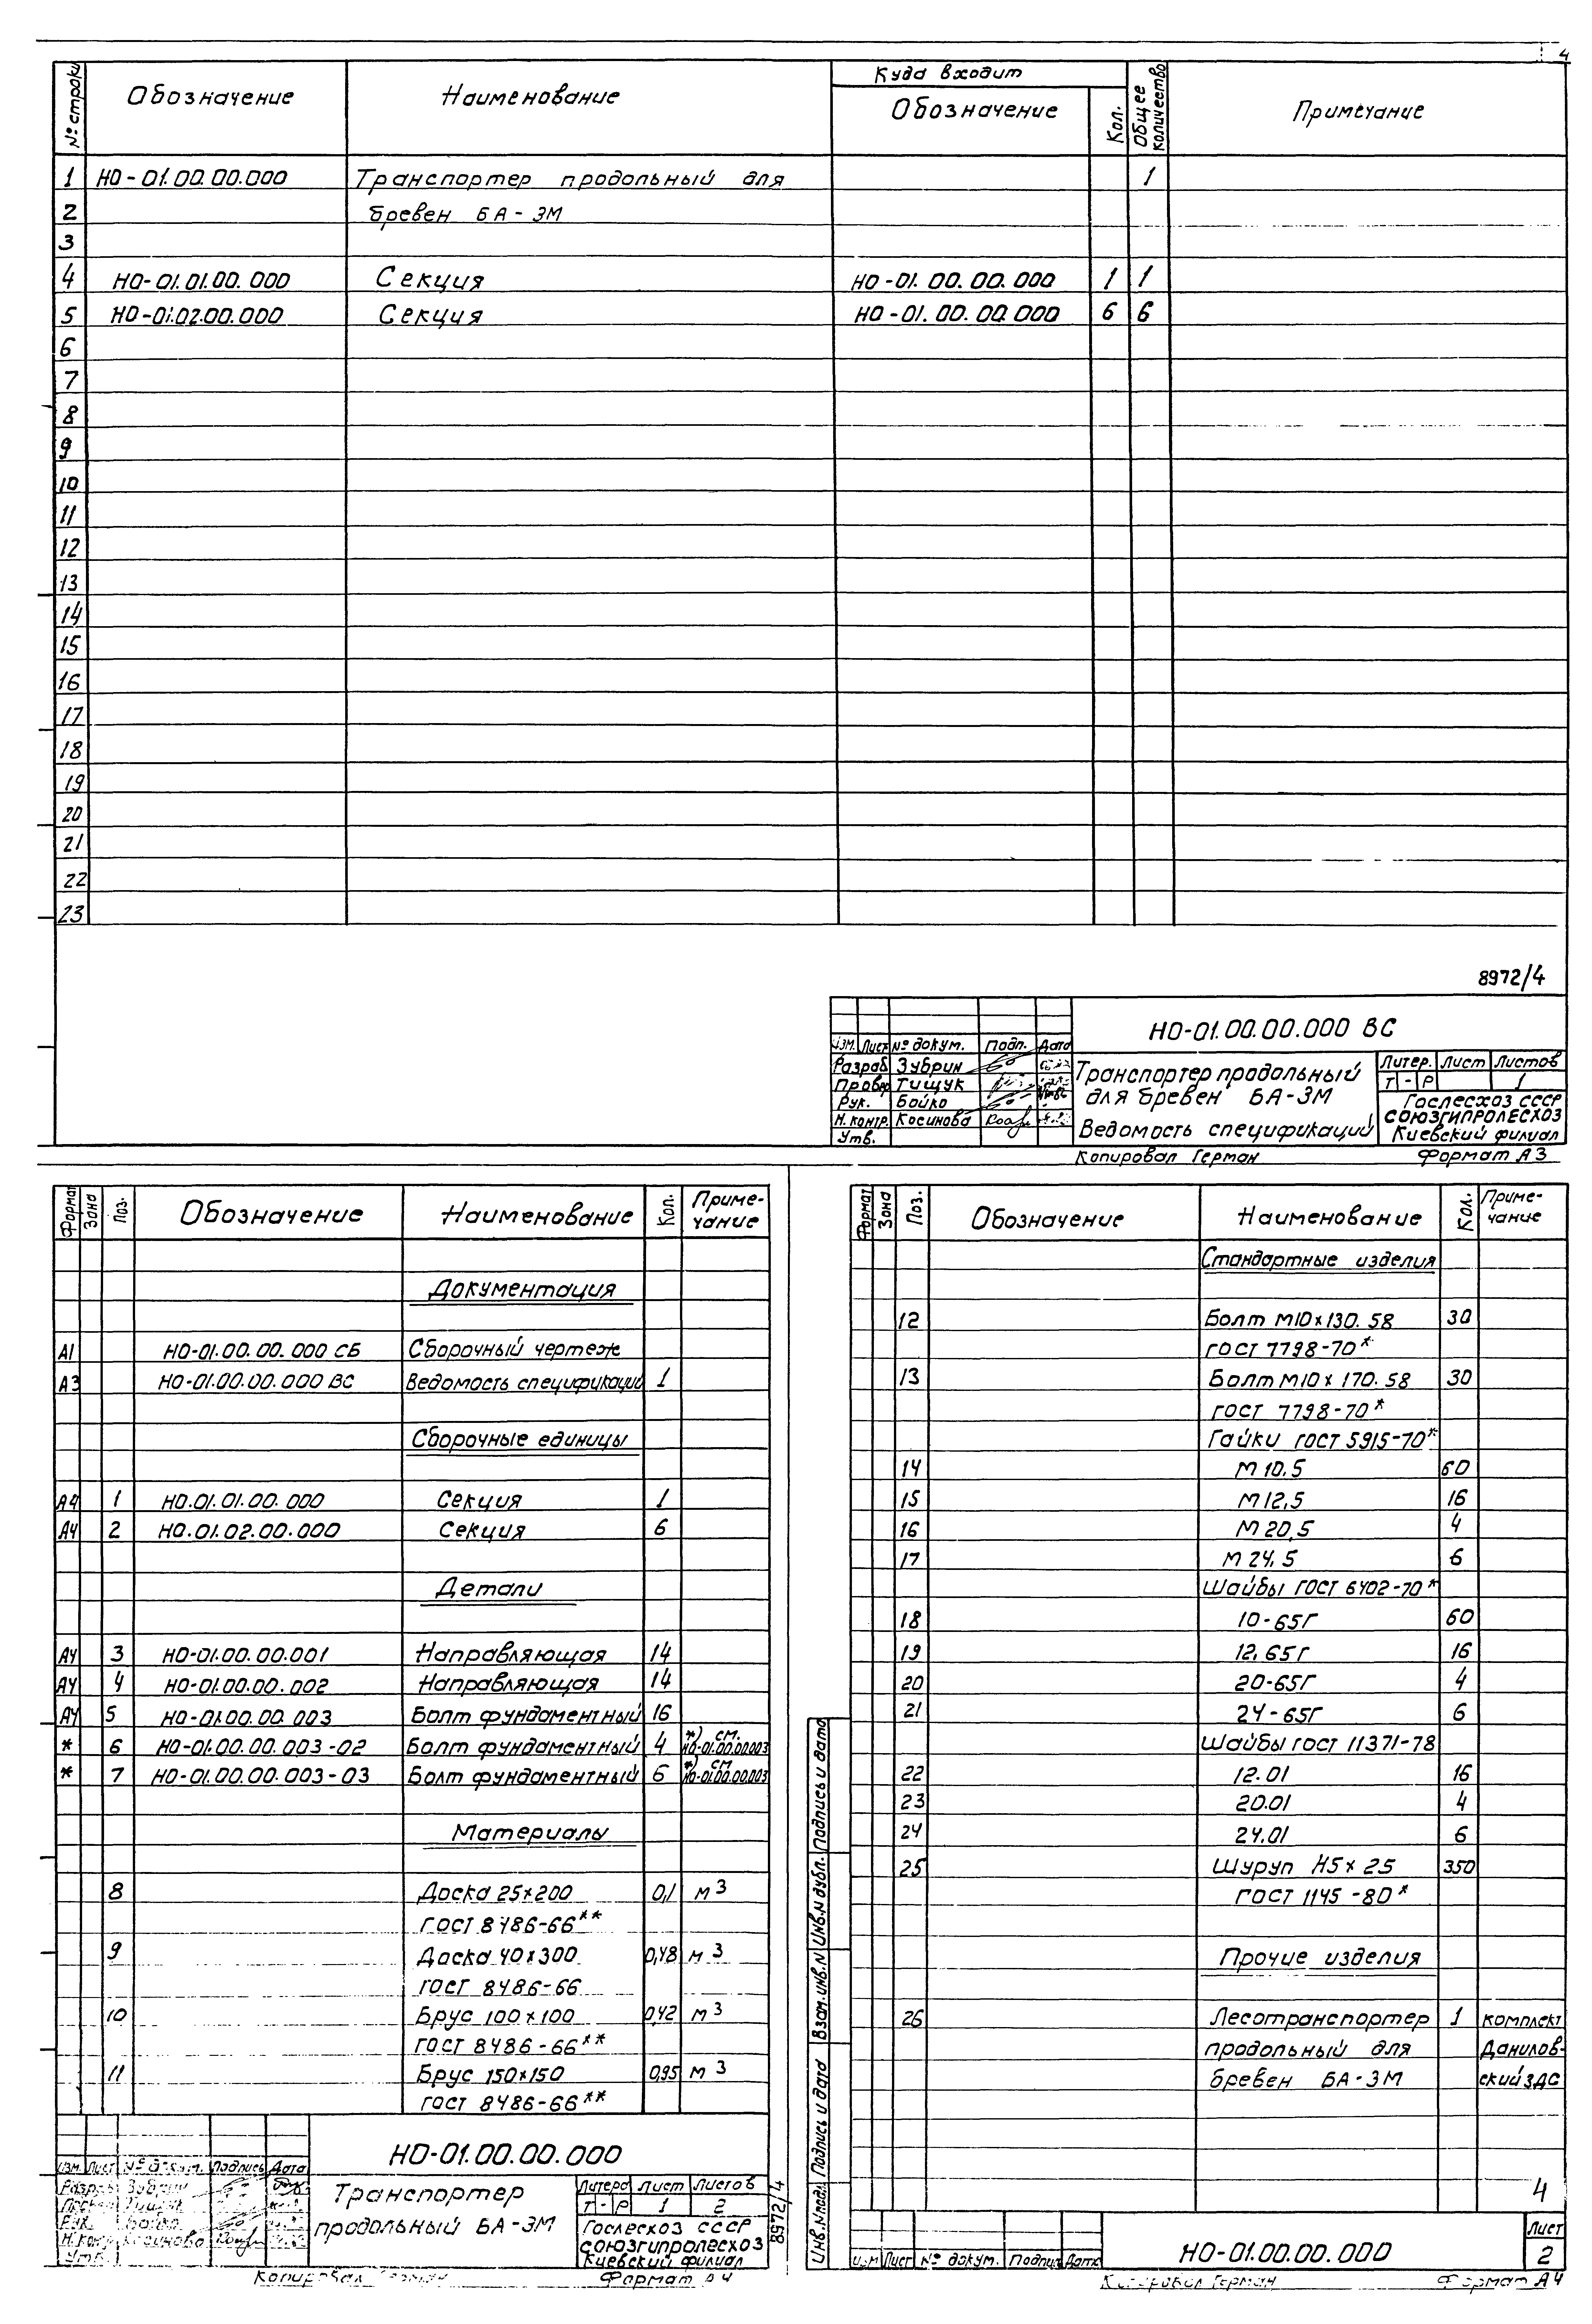 4
№ строки Обозначение Наименование Куда входит Общее количество Примечание
Обозначение Кол.
1 НО-01.00.00.000 Транспортер продольный для 1
2 бревен БА-3М
3
4 НО-01.01.00.000 Секция НО-01.00.00.000 1 1
5 НО-01.02.00.000 Секция НО-01.00.00.000 6 6
6
7
8
9
10
11
12
13
14
15
16
17
18
19
20
21
22
23
8972/4
НО-01.00.00.000 ВС
Изм. Лист № докум. Подп. Дата
Разраб Зубрин
Провер Тищук
Рук. Бойко
Н. контр. Косинова
Утв.
Транспортер продольный
для бревен БА-3М
Ведомость спецификаций
Литер. Лист Листов
Т - Р 1
Гослесхоз СССР
СОЮЗГИПРОЛЕСХОЗ
Киевский филиал
Копировал Герман Формат А3
Формат Зона Поз. Обозначение Наименование Кол. Приме-
чание
Документация
А1 НО-01.00.00.000 СБ Сборочный чертеж
А3 НО-01.00.00.000 ВС Ведомость спецификаций 1
Сборочные единицы
А4 1 НО.01.01.00.000 Секция 1
А4 2 НО.01.02.00.000 Секция 6
Детали
А4 3 НО-01.00.00.001 Направляющая 14
А4 4 НО-01.00.00.002 Направляющая 14
А4 5 НО-01.00.00.003 Болт фундаментный 16
* 6 НО-01.00.00.003-02 Болт фундаментный 4 *) см. НО-01.00.00.003
* 7 НО-01.00.00.003-03 Болт фундаментный 6 *) см НО-01.00.00.003
Материалы
8 Доска 25×200 0,1 м3
ГОСТ 8486-66**
9 Доска 40×300 0,48 м3
ГОСТ 8486-66
10 Брус 100×100 0,42 м3
ГОСТ 8486-66**
11 Брус 150×150 0,95 м3
ГОСТ 8486-66**
НО-01.00.00.000
Изм. Лист № докум. Подпись Дата
Рук.
Н. конт
Утв.
Транспортер
продольный БА-3М
Литера Лист Листов
Т - Р 1 2
Гослесхоз СССР
СОЮЗГИПРОЛЕСХОЗ
Киевский филиал
8972/4
Копировал Герман Формат А4
Формат Зона Поз. Обозначение Наименование Кол. Приме-
чание
Стандартные изделия
12 Болт М10×130.58 30
ГОСТ 7798-70*
13 Болт М10×170.58 30
ГОСТ 7798-70*
Гайки ГОСТ 5915-70*
14 М10.5 60
15 М12,5 16
16 М20,5 4
17 М24,5 6
Шайбы ГОСТ 6402-70*
18 10-65Г 60
19 12.65Г 16
20 20-65Г 4
21 24-65Г 6
Шайбы ГОСТ 11371-78
22 12.01 16
23 20.01 4
24 24.01 6
25 Шуруп Н5×25 350
ГОСТ 1145-80*
Прочие изделия
26 Лесотранспортер 1 комплект
продольный для Данилов-
бревен БА-3М ский ЗДС
4
Инв. № подл. Подпись и дата Взам. инв. № Инв. № дубл. Подпись и дата
Изм Лист № докум. Подпис Дата
НО-01.00.00.000
Лист
2
Копировал Герман Формат А4